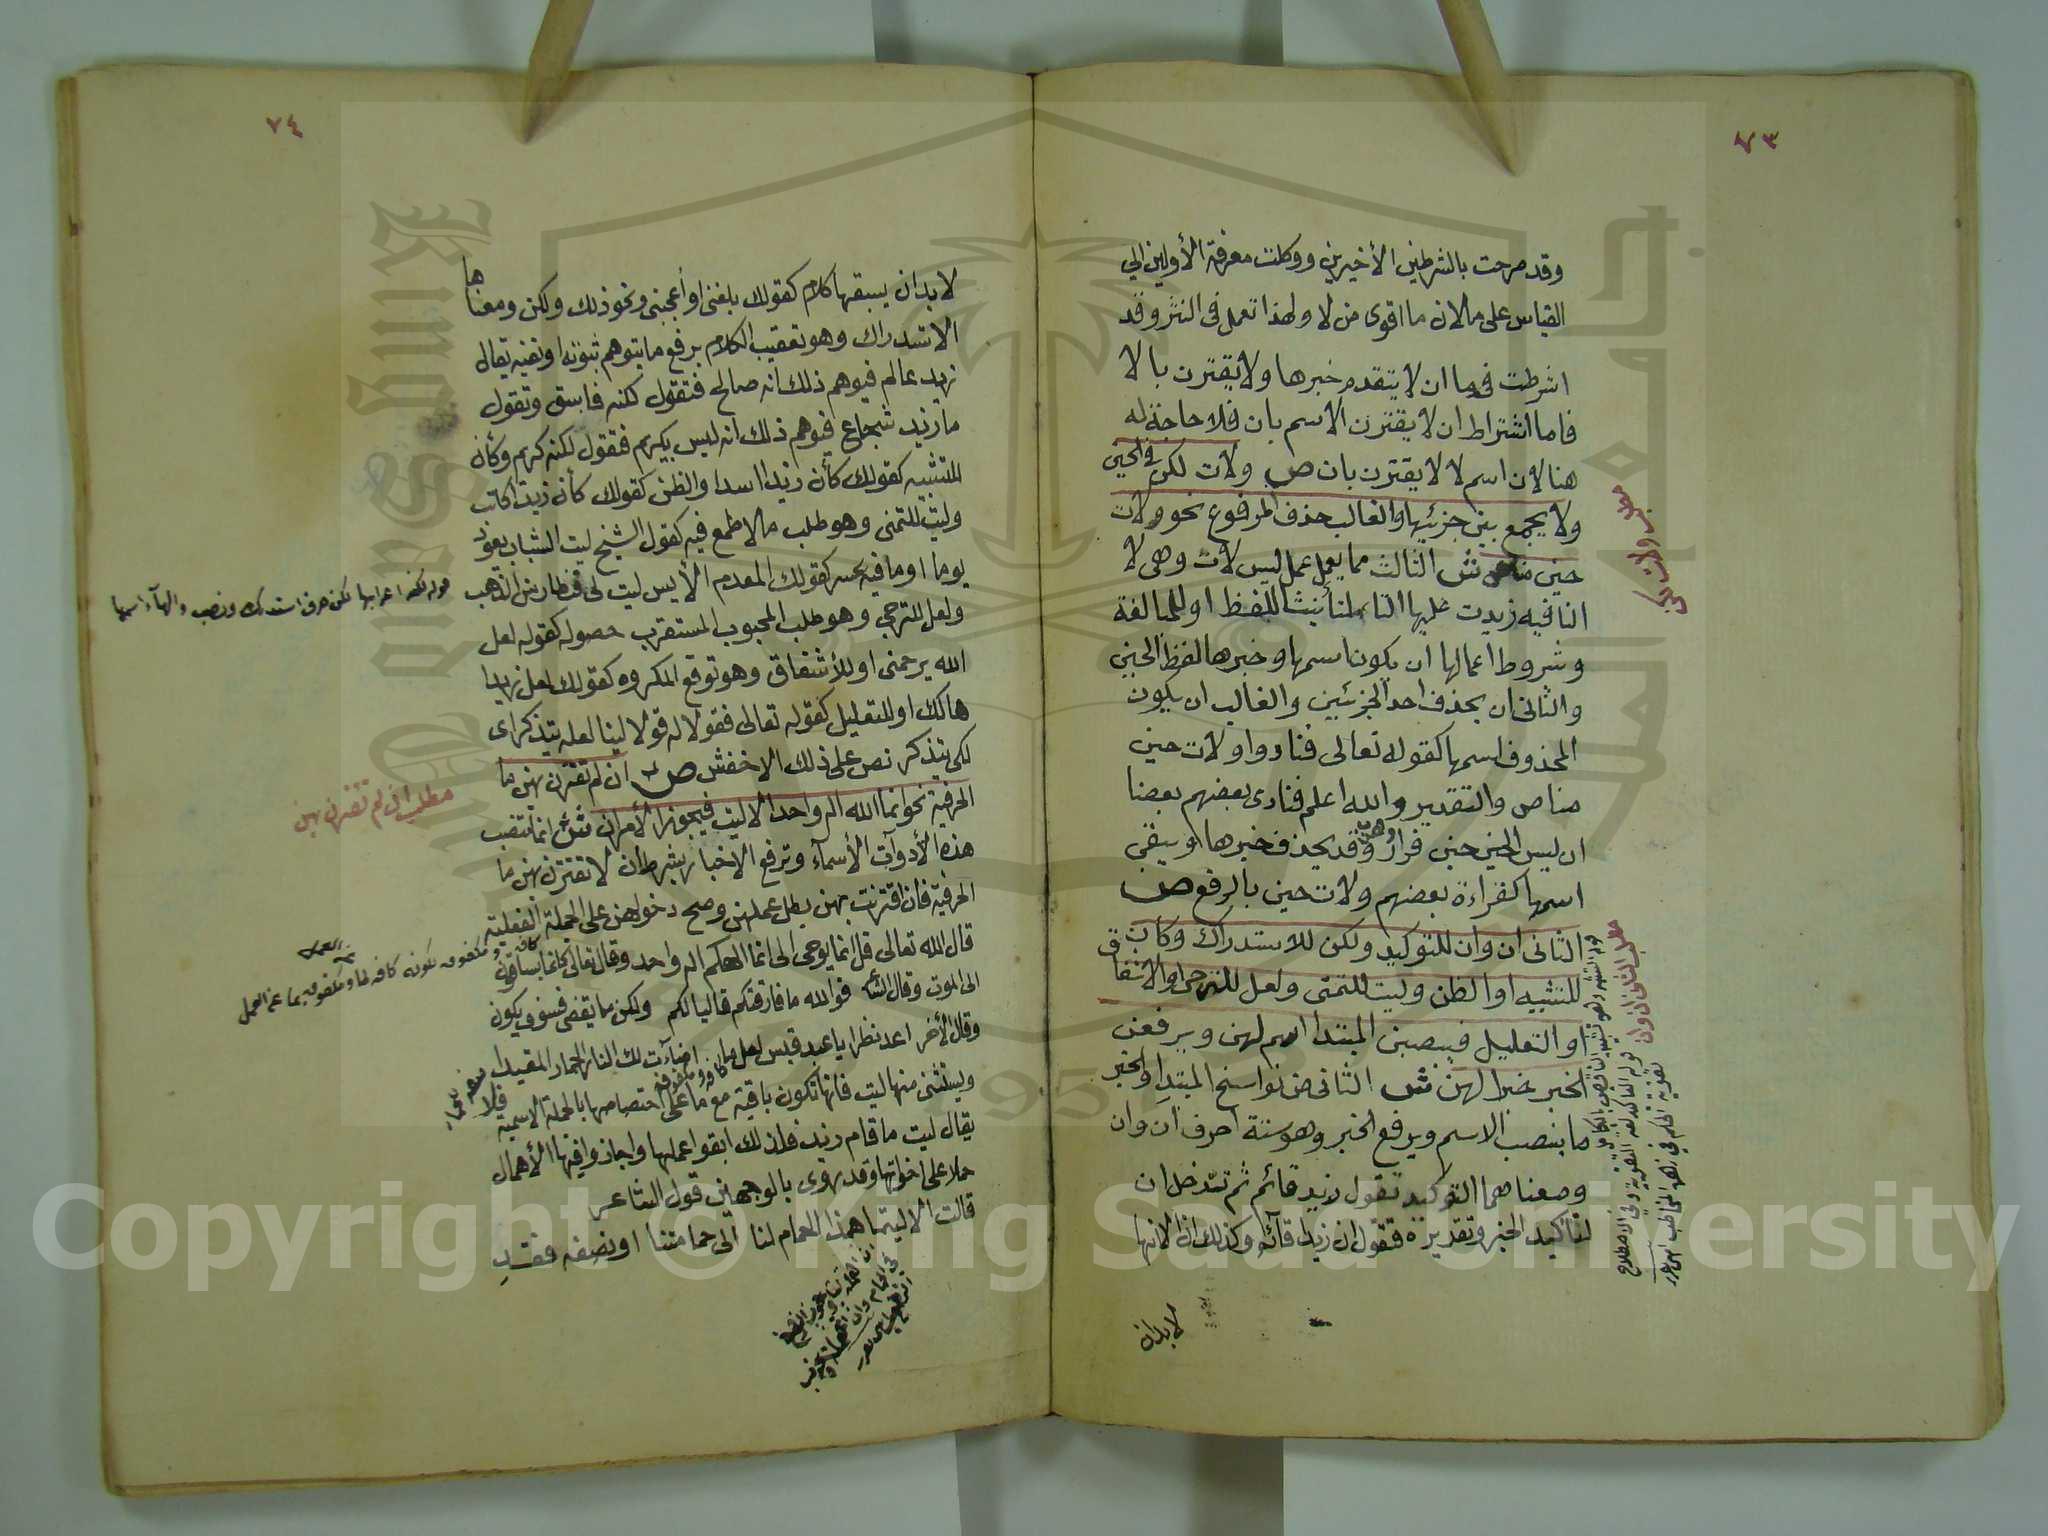 ٧٣
وقد صرحت بالشرطين الأخيرين ووكلت معرفة الأولين الي
القياس على ما لان ما اقوى من لا ولهذا تعمل فى النثر وقد
اشرطت فى ما ان لا يتقدم خبرها ولا يقترن بالا
فاما اشتراط ان لا يقترن الاسم بان فلا حاجة له
هنا لان اسم لا لا يقترن بان ص ولات لكن فى الحين
ولا يجمع بين جزئيها والغالب حذف المرفوع نحو ولات
حين مناص ش الثالث مما يعمل عمل ليس لات وهى لا
النافيه زيدت عليها التاء لتأنيث اللفظ او للمبالغة
وشروط اعمالها ان يكون اسمها وخبرها لفظ الحين
والثانى ان يحذف احد الجزئين والغالب ان يكون
المحذوف اسمها كقوله تعالى فنادوا ولات حين
مناص والتقدير والله اعلم فنادى بعضهم بعضا
ان ليس الحين حين فرار وقد يحذف خبرها او يبقى
اسمها كقراءة بعضهم ولات حين بالرفع ص
الثانى ان وان للتوكيد ولكن للاستدراك وكأن
للتشبيه او الظن وليت للتمنى ولعل للترجى او الاشفاق
او التعليل فينصبن المبتدا اسم لهن ويرفعن
الخبر خبرا لهن ش الثانى من نواسخ المبتدا والخبر
ما ينصب الاسم ويرفع الخبر وهو ستة احرف ان وان
ومعناهما التوكيد تقول زيد قائم ثم تدخل ان
لتأكيد الخبر وتقديره فتقول ان زيدا قائم وكذلك ان الا انها
لابدان
٧٤
لا بد ان يسبقها كلام كقولك بلغنى او أعجبنى ونحو ذلك ولكن ومعناها
الاستدراك وهو تعقيب الكلام برفع ما يتوهم ثبوته او نفيه يقال
زيد عالم فيوهم ذلك انه صالح فتقول لكنه فاسق وتقول
ما زيد شجاع فيوهم ذلك انه ليس بكريم فتقول لكنه كريم وكأن
للتشبيه كقولك كأن زيدا اسد او الظن كقولك كأن زيدا كاتب
وليت للتمنى وهو طلب ما لا طمع فيه كقول الشيخ ليت الشباب يعود
يوما او ما فيه عسر كقولك المعدم الأيس ليت لى قنطار من الذهب
ولعل للترجى وهو طلب المحبوب المستقرب حصوله كقوله لعل
الله يرحمنى او للأشفاق وهو توقع المكروه كقولك لعل زيدا
هالك او للتعليل كقوله تعالى فقولا له قولا لينا لعله يتذكر اى
لكى يتذكر نص على ذلك الاخفش ص ان لم تقترن بهن ما
الحرفية نحو انما الله اله واحد الا ليت فيجوز الأمران ش انما تنصب
هذه الأدوات الأسماء وترفع الاخبار بشرط ان لا تقترن بهن ما
الحرفية فان اقترنت بهن بطل عملهن وصح دخولهن على الجملة الفعلية
قال الله تعالى قل انما يوحى الى انما الهكم اله واحد وقال تعالى كانما يساقون
الى الموت وقال الشا فوالله ما فارقتكم قاليا لكم ولكن ما يقضى فسوف يكون
وقال الأخر اعد نظرا يا عبد قيس لعلما اضاءت لك النار الحمار المقيدا
ويستثنى منها ليت فانها تكون باقية مع ما على اختصاصها بالجملة الاسمية فلا
يقال ليت ما قام زيد فلذلك ابقوا عملها واجازوا فيها الأهمال
حملا على اخواتها وقد روى بالوجهين قول الشاعر
قالت الا ليتما هذا الحمام لنا الى حمامتنا او نصفه فقد
قوله لكنه اعرابها لكن حرف استدراك ونصب والهاء اسمها
مطلب ان لم تقترن بهن
مطلب الثانى ان وان
Copyright © King Saud University